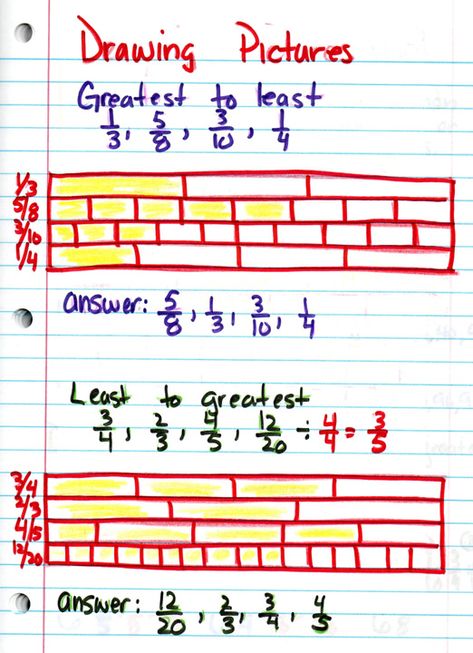 Drawing Pictures
Greatest to least
1/3, 5/8, 3/10, 1/4
1/3
5/8
3/10
1/4
answer: 5/8, 1/3, 3/10, 1/4
Least to greatest
3/4, 2/3, 4/5, 12/20 ÷ 4/4 = 3/5
3/4
2/3
4/5
12/20
answer: 12/20, 2/3, 3/4, 4/5